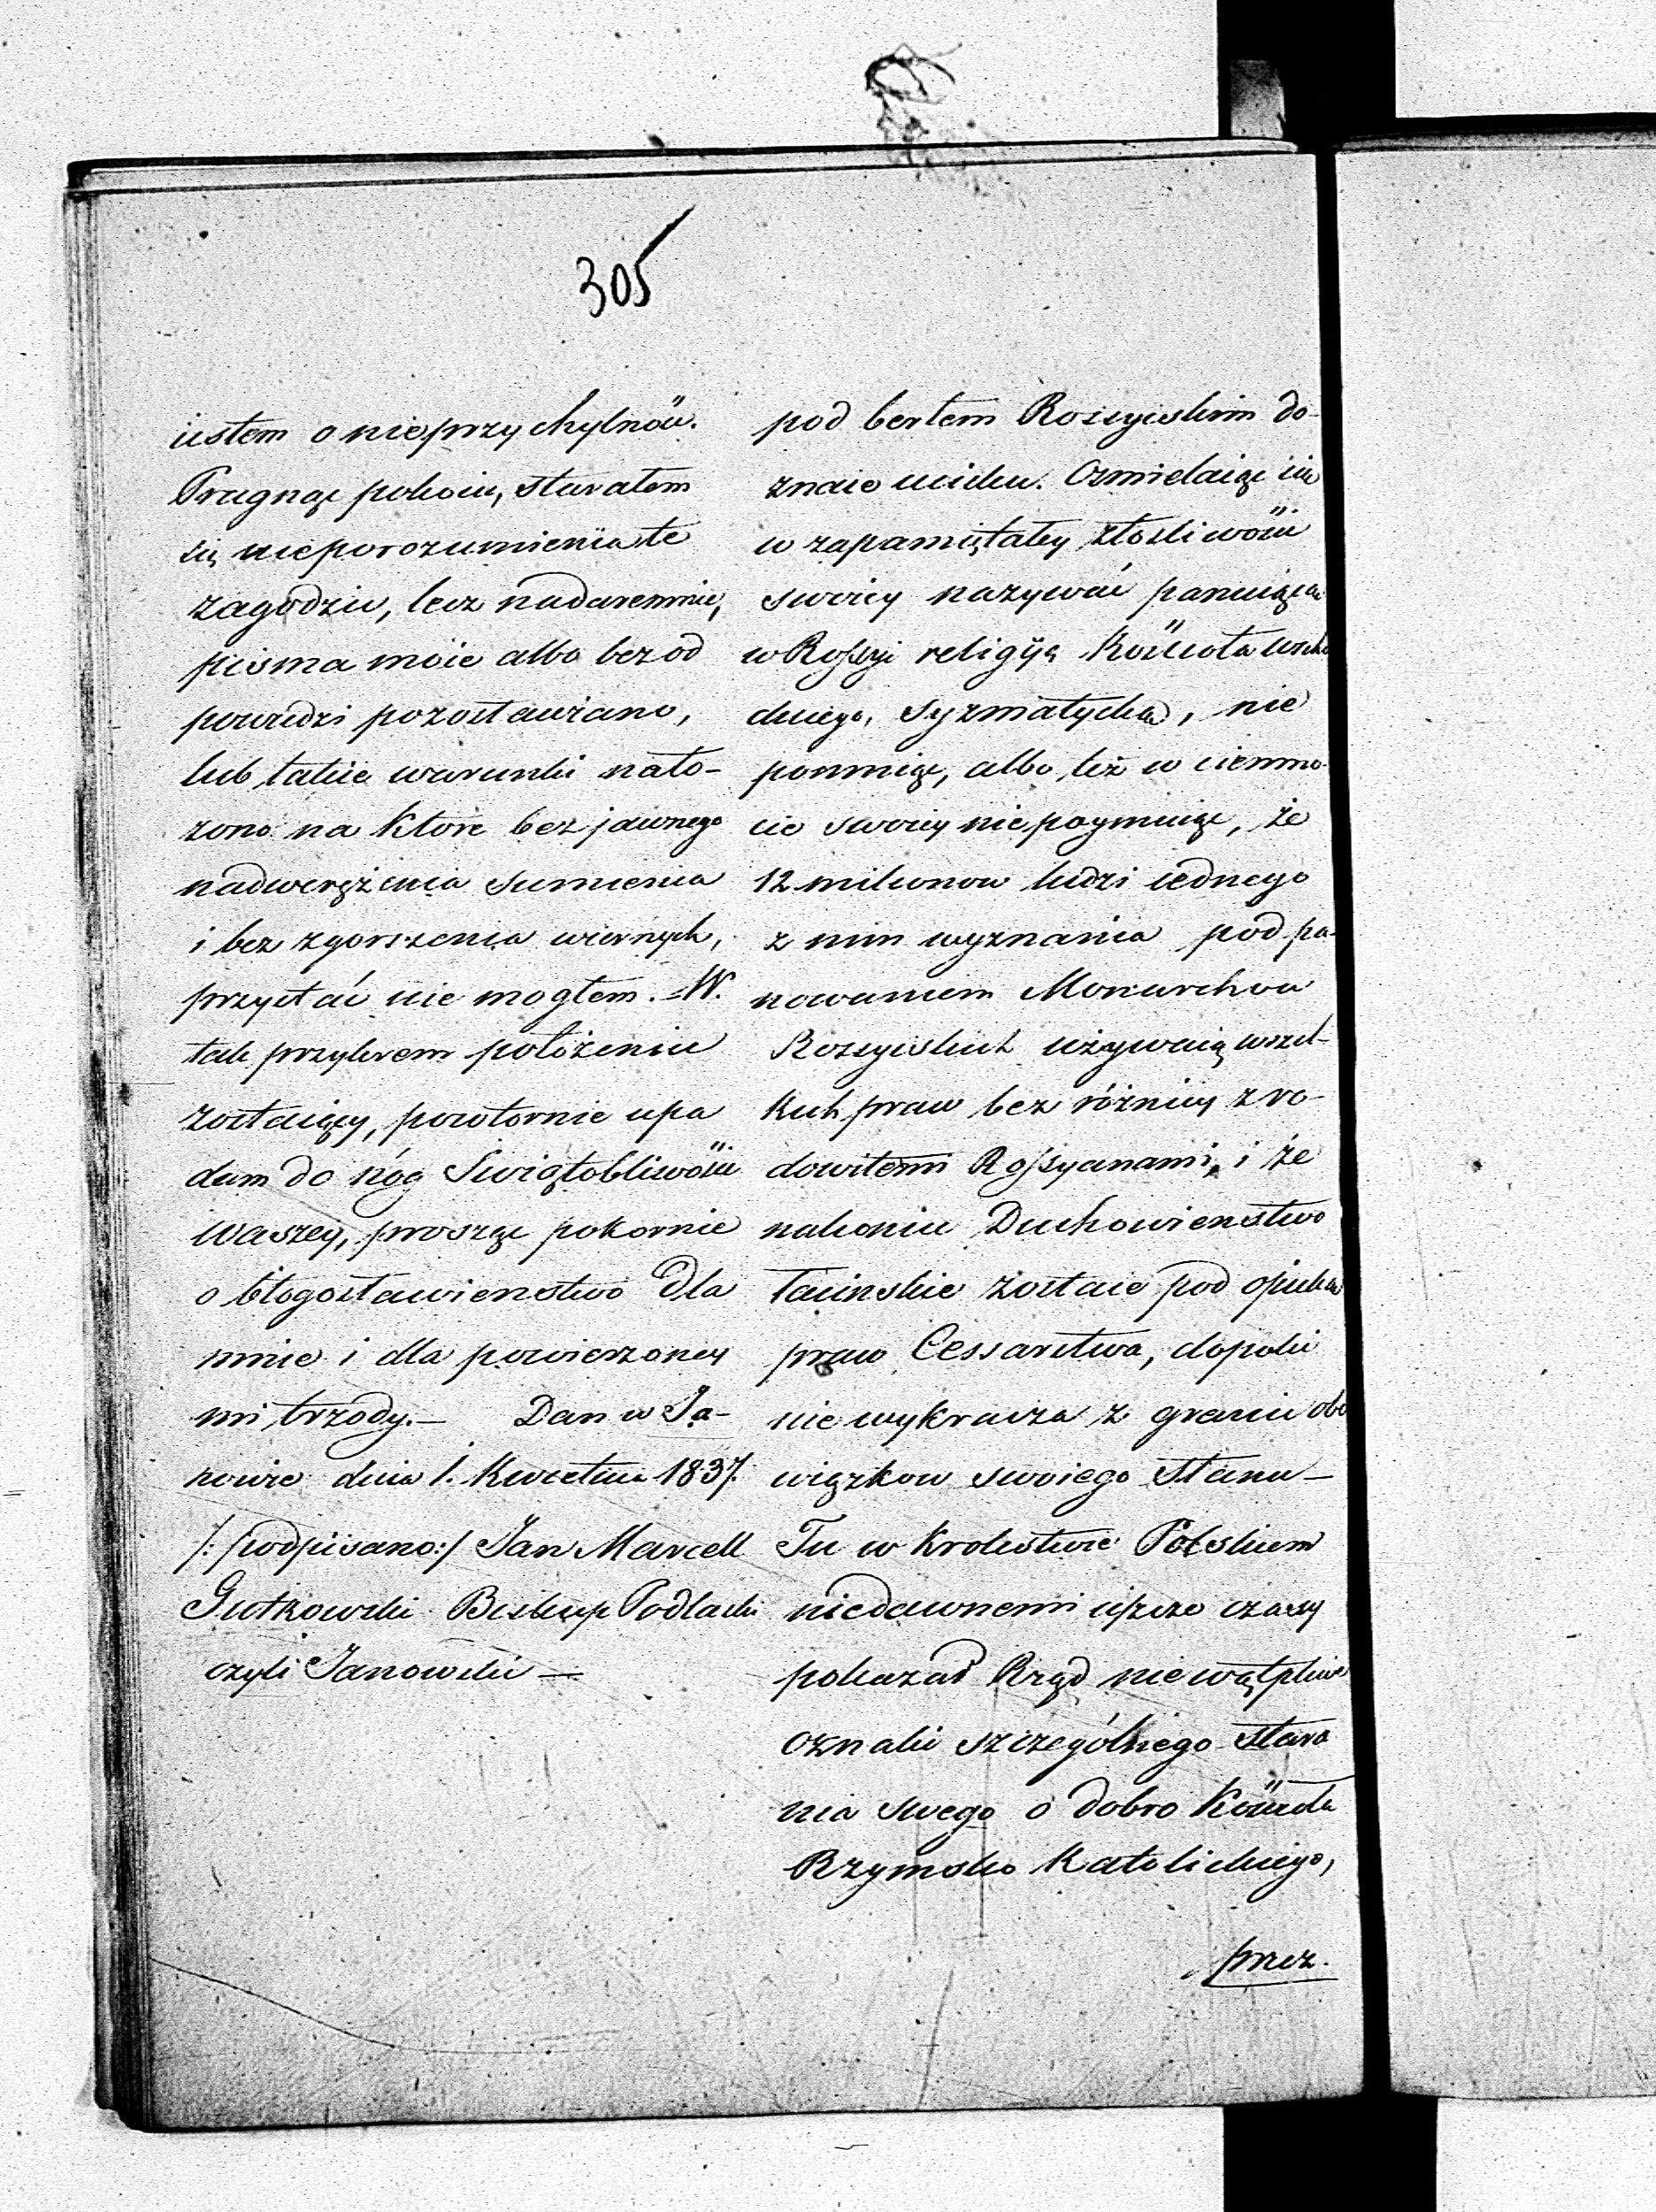 305
iestem o nieprzychylność.
Pragnąc pokoiu, starałem
się nieporozumienia te
zagodzić, lecz nadaremnie,
pisma moie albo bez od
powiedzi pozostawiano,
lub takie warunki nało-
żono na które bez jawnego
nadwerężenia sumienia
i bez zgorszenia wiernych,
przystać nie mogłem. – W.
tak przykrem położeniu
zostaiący, powtornie upa
dam do nóg Swiątobliwości
Waszey, prosząc pokornie
o błogosławienstwo dla
mnie i dla powierzoney
mi trzody. – Dan w Ja-
nowie dnia 1. Kwietnia 1837.
/: podpisano:/ Jan Marcell
Gutkowski Biskup Podlaski
czyli Janowski –
pod berłem Rossyiskim do-
znaie ucisku. Osmielaiąc się
w zapamiętałey złośliwości
swoiey nazywać panuiącą
w Rossyi religiją Kościoła wscho
dniego, syzmatycką, nie
pomniąc, albo też w ciemno-
cie swoiey nie poymuiąc, że
12 milionow ludzi iednego
z nim wyznania pod pa-
nowaniem Monarchow
Rossyiskich używaią wszel-
kich praw bez różnicy z ro-
dowitemi Rossyanami, i że
nakoniec Duchowienstwo
łacinskie zostaie pod opieką
praw Cessarstwa, dopoki
nie wykracza z granic obo
wiązkow swoiego stanu –
Tu w Krolestwie Polskiem
niedawnemi ieszcze czasy
pokazał Rząd niewątpliwe
oznaki szczególnego stara
nia swego o dobro Kościoła
Rzymsko Katolickiego,
przez.